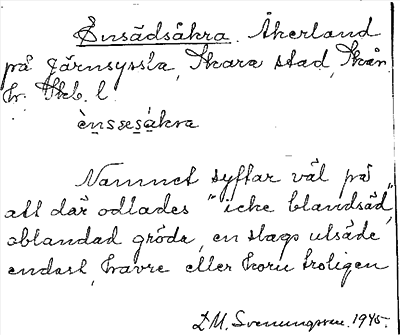 Ensädsåkra. Åkerland
på Järnsyssla, Skara stad, Skån.
hr. Skb. l.
ènssesåkra
Namnet syftar väl på
att där odlades "icke blandsäd",
oblandad gröda, en slags utsäde
endast, havre eller korn troligen
L M. Svenungsson. 1945.